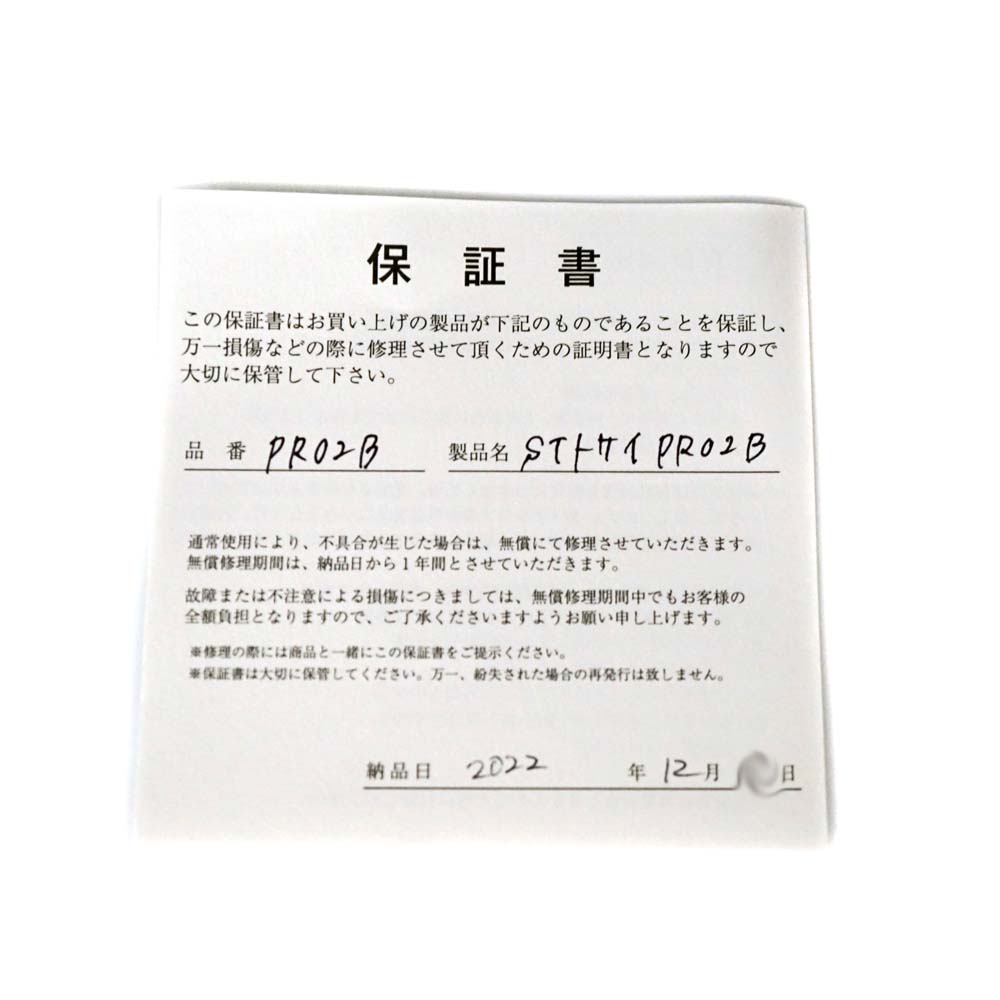 保証書
この保証書はお買い上げの製品が下記のものであることを保証し、
万一損傷などの際に修理させて頂くための証明書となりますので
大切に保管して下さい。
品番 PR02B 製品名 STトケイPR02B
通常使用により、不具合が生じた場合は、無償にて修理させていただきます。
無償修理期間は、納品日から1年間とさせていただきます。
故障または不注意による損傷につきましては、無償修理期間中でもお客様の
全額負担となりますので、ご了承くださいますようお願い申し上げます。
※修理の際には商品と一緒にこの保証書をご提示ください。
※保証書は大切に保管してください。万一、紛失された場合の再発行は致しません。
納品日 2022 年 12月 日